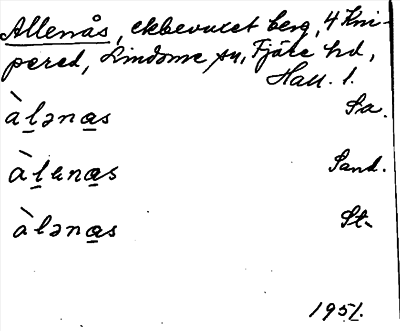 Allenås, ekbevuxet berg, 4 Kni-
pered, Lindome sn, Fjäre hd,
Hall. l.
àlǝnas Sa.
àlɛnas Sand.
àlǝnas St.
1951.